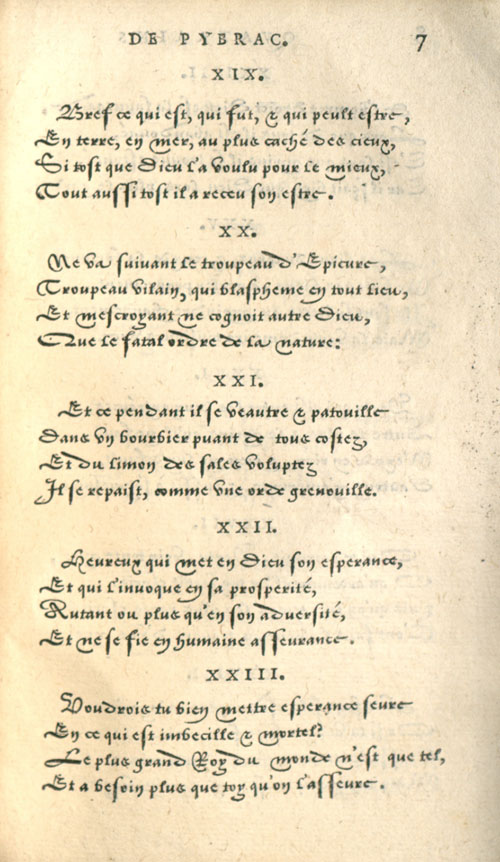 DE PYBRAC. 7
XIX.
Bref ce qui est, qui fut, & qui peult estre,
En terre, en mer, au plus caché des cieux,
Si tost que Dieu l'a voulu pour le mieux,
Tout aussi tost il a receu son estre.
XX.
Ne va suivant le troupeau d'Epicure,
Troupeau vilain, qui blaspheme en tout lieu,
Et mescroyant ne cognoit autre Dieu,
Que le fatal ordre de la nature:
XXI.
Et ce pendant il se veautre & patouille
Dans vn bourbier puant de tous costez,
Et du limon des sales voluptez
Il se repaist, comme vne orde grenouille.
XXII.
Heureux qui met en Dieu son esperance,
Et qui l'invoque en sa prosperité,
Autant ou plus qu'en son adversité,
Et ne se fie en humaine asseurance.
XXIII.
Voudrois tu bien mettre esperance seure
En ce qui est imbecille & mortel?
Le plus grand Roy du monde n'est que tel,
Et a besoin plus que toy qu'on l'asseure.